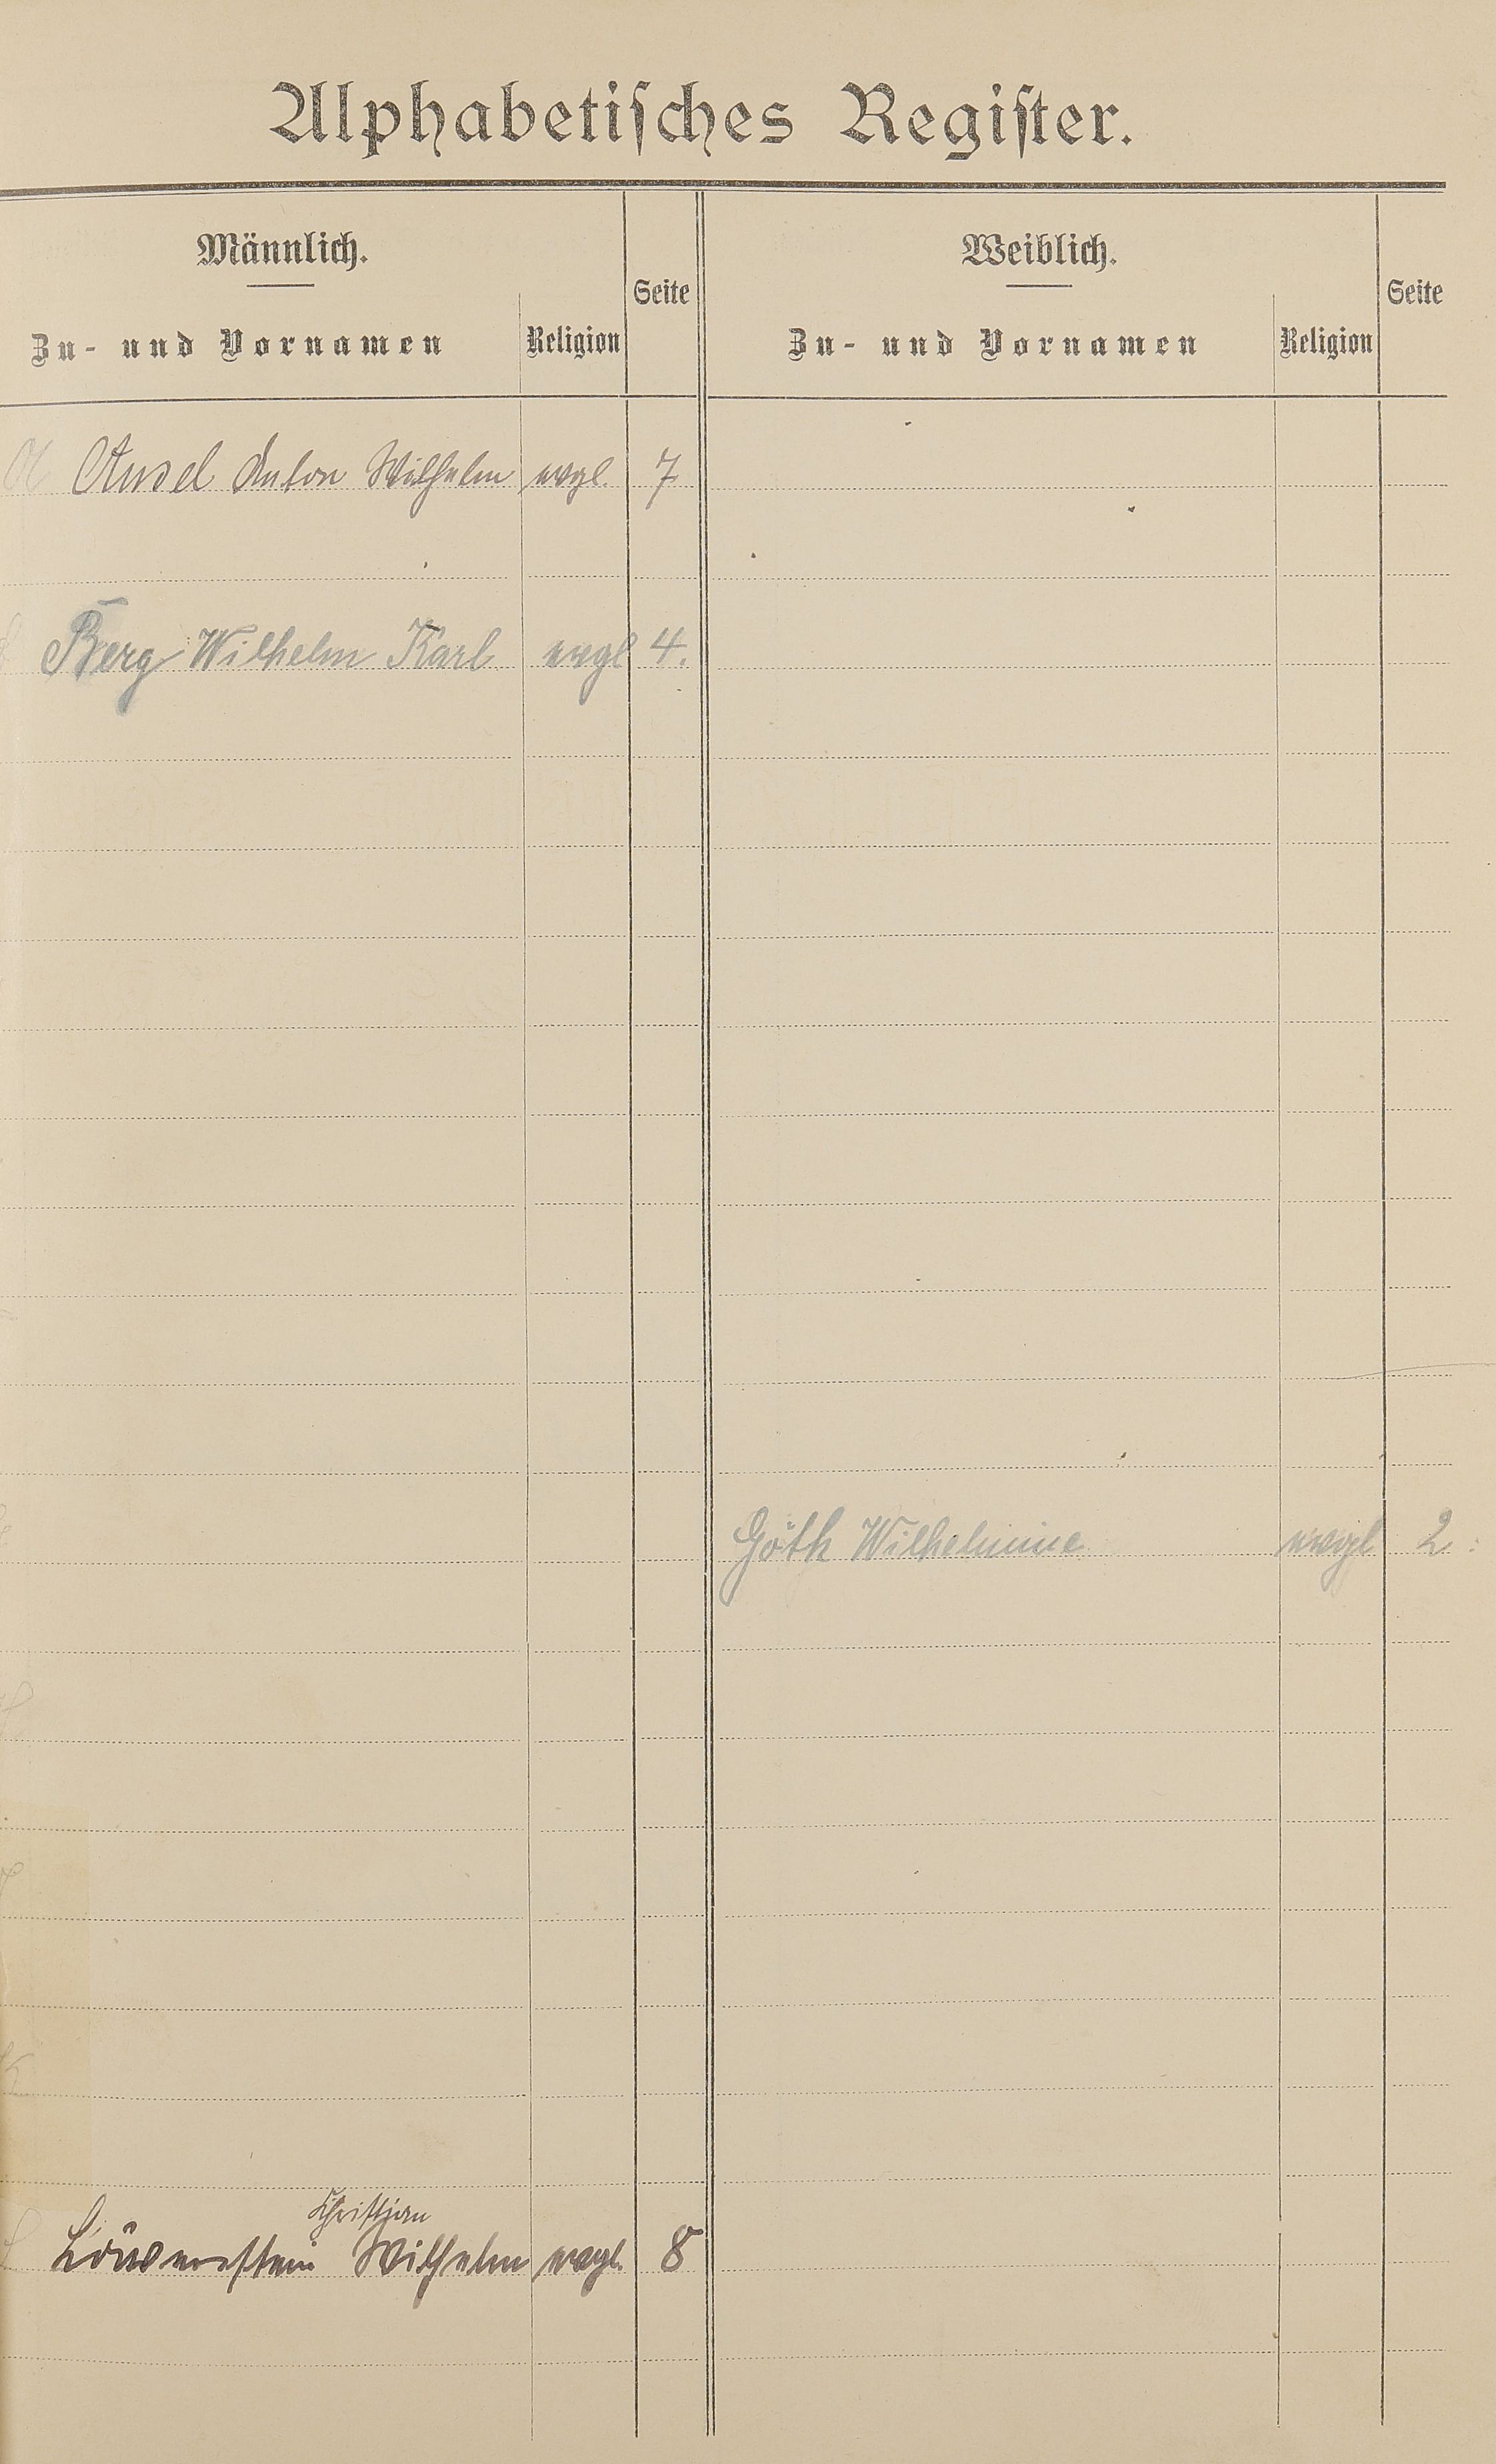 Alphabetisches Register.
Männlich.
Seite
Zu- und Vornamen
Religion
Weiblich.
Seite
Zu- und Vornamen
Religion
A Ansel Anton Wilhelm evgl. 7
Berg Wilhelm Karl evgl 4.
Göth Wilhelmine evgl 2.
Christian
L Löwenstein Wilhelm evgl. 8